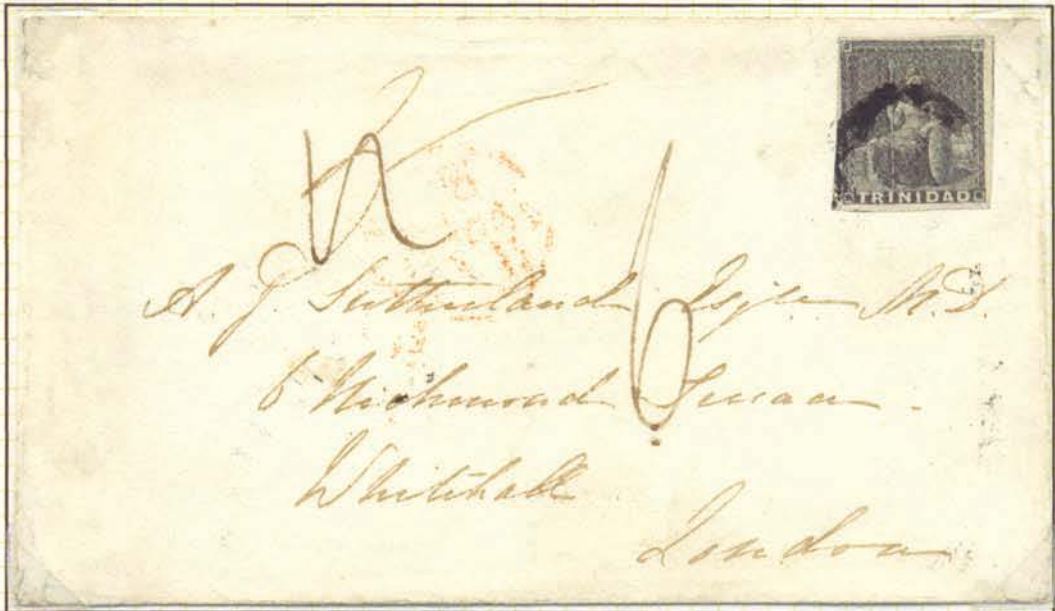 TRINIDAD
6
A. J. Sutherland Esqre M.D.
6 Richmond Terrace.
Whitehall
London